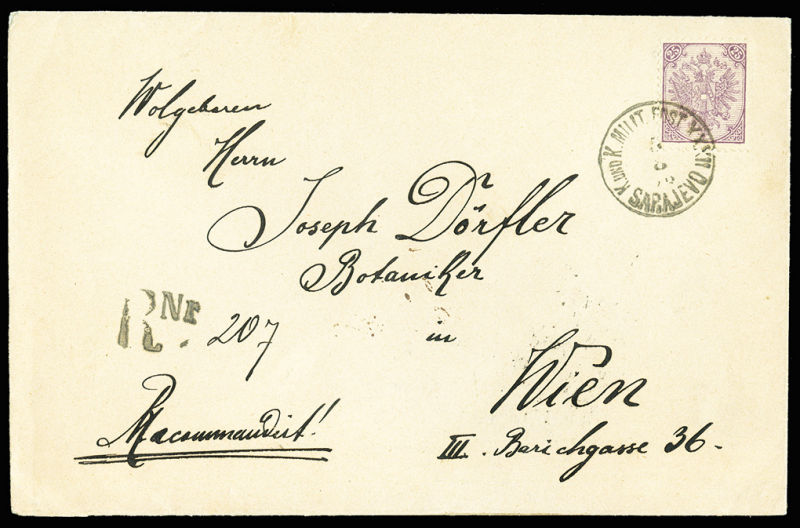 25 25
K. UND K. MILIT. POST
SARAJEVO
Wolgeboren
Herrn
Joseph Dörfler
Botaniker
R Nr. 207
in
Wien
Racommandirt!
III. Barichgasse 36.